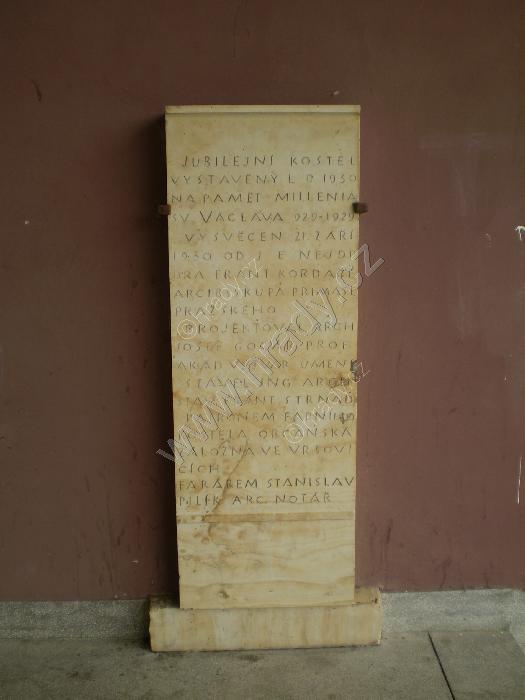 JUBILEJNÍ KOSTEL
VYSTAVENÝ L. P. 1930
NA PAMĚT MILLENIA
SV. VÁCLAVA 929-1929
VYSVĚCEN 21. ZÁŘÍ
1930 OD J. E. NEJDP
DRA FRANT KORDAČE
ARCIBISKUPA PRIMASE
PRAŽSKÉHO
PROJEKTOVAL ARCH
JOSEF GOČÁR PROF
AKAD VÝTVAR UMĚNÍ
STAVĚL ING ARCH
FRANT STRNAD
PATRONEM FARNÍHO
KOSTELA OBČANSKÁ
ZÁLOŽNA VE VRŠOVI
CÍCH
FARÁŘEM STANISLAV
PILÍK ARC. NOTÁŘ
© hrady.cz
www.hrady.cz
© hrady.cz